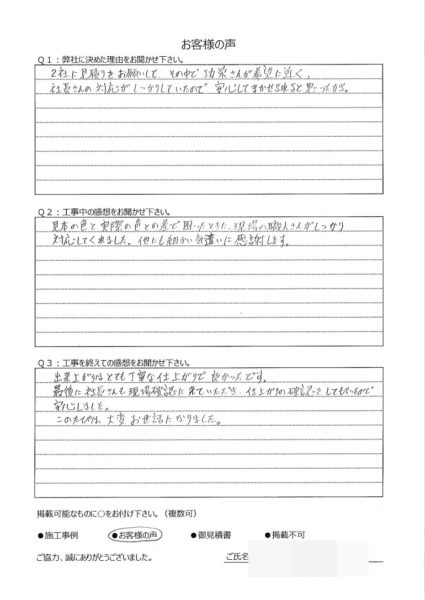 お客様の声
Q1：弊社に決めた理由をお聞かせ下さい。
2社に見積りをお願いして その中で功栄さんが希望に近く、
社長さんの対応がしっかりしていたので 安心してまかせられると思ったから。
Q2：工事中の感想をお聞かせ下さい。
見本の色と実際の色との差で困ったときも、現場の職人さんがしっかり
対応してくれました。他にも細かい気遣いに感謝します。
Q3：工事を終えての感想をお聞かせ下さい。
出来上がりはとても丁寧な仕上がりで良かったです。
最後に社長さんも現場確認に来ていただき、仕上がりの確認をしてもらったので
安心しました。
このたびは、大変お世話になりました。
掲載可能なものに○をお付け下さい。（複数可）
●施工事例 ●お客様の声 ●御見積書 ●掲載不可
ご協力、誠にありがとうございました。 ご氏名